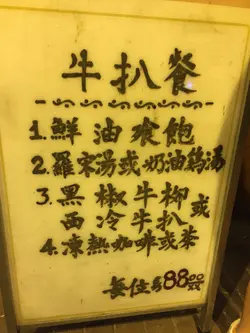 牛扒餐
1.鮮油飱飽
2.羅宋湯或奶油鷄湯
3.黑椒牛柳
西冷牛扒 或
4.凍熱咖啡或茶
每位$88